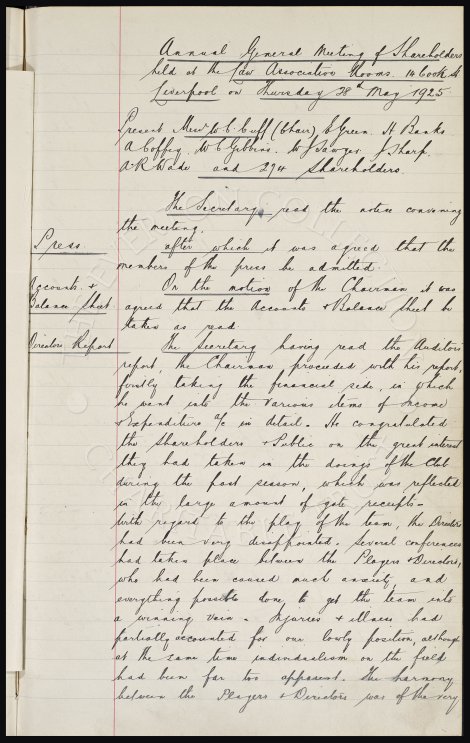 Annual General Meeting of Shareholders
held at the Law Association Rooms. 14 Cook St
Liverpool on Thursday 28th May 1925
Present Messrs W. C. Cuff (Chair), E Green. H Banks
A Coffey. W C Gibbins. W J Sawyer. J Sharp.
A. R. Wade and 294 Shareholders.
The Secretary read the notice convening
the meeting.
Press.
after which it was agreed that the
members of the press be admitted.
Accounts &
Balance Sheet.
On the motion of the Chairman it was
agreed that the Accounts & Balance Sheet be
taken as read.
Directors Report
The Secretary having read the Auditors
report, the Chairman proceeded with his report,
firstly taking the financial side, in which
he went into the various items of Income
& Expenditure a/c in detail. He congratulated
the Shareholders & Public on the great interest
they had taken in the doings of the Club
during the past season, which was reflected
in the large amount of gate receipts.
With regard to the play of the team, the Directors
had been very disappointed. Several conferences
had taken place between the Players & Directors,
who had been caused much anxiety, and
everything possible done to get the team into
a winning vein. Injuries & illness had
partially accounted for our lowly position, although
at the same time individualism on the field
had been far too apparent. The harmony
between the Players & Directors was of the very